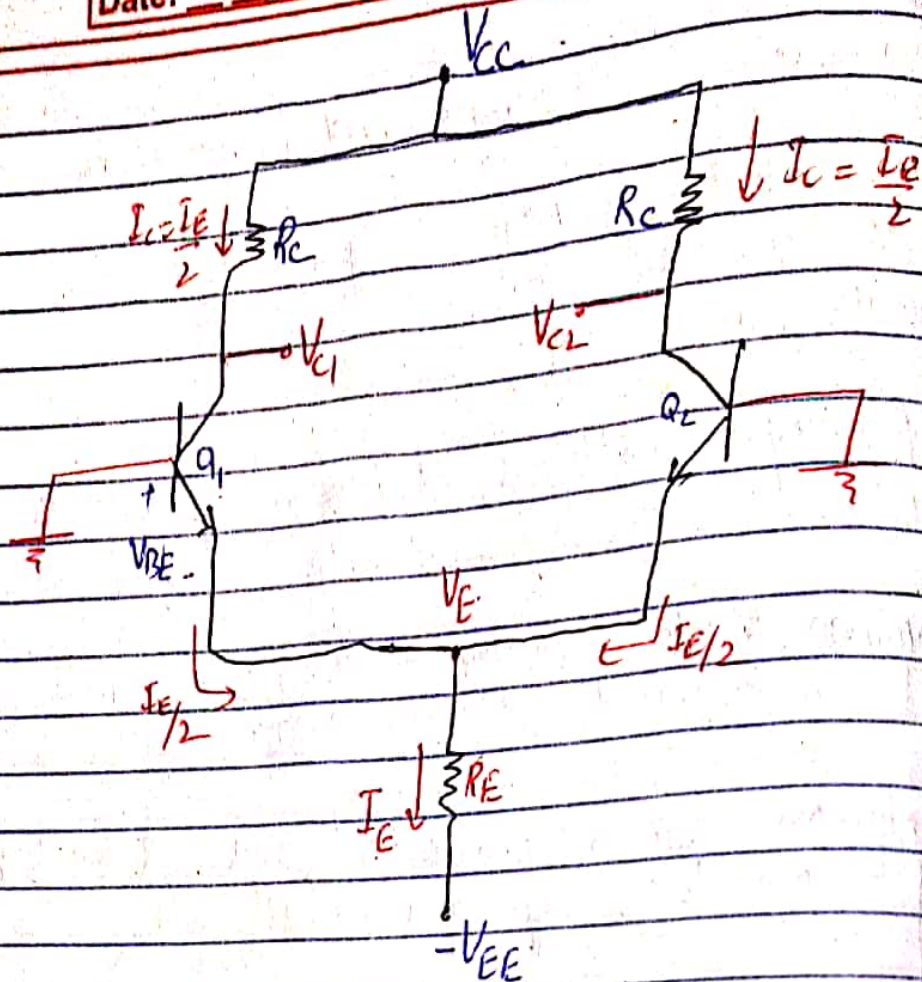 Date:
VCC
IC = IE/2
RC
RC
IC = IE/2
VC1
VC2
Q1
Q2
+
VBE
-
VE
IE/2
IE/2
IE
RE
-VEE